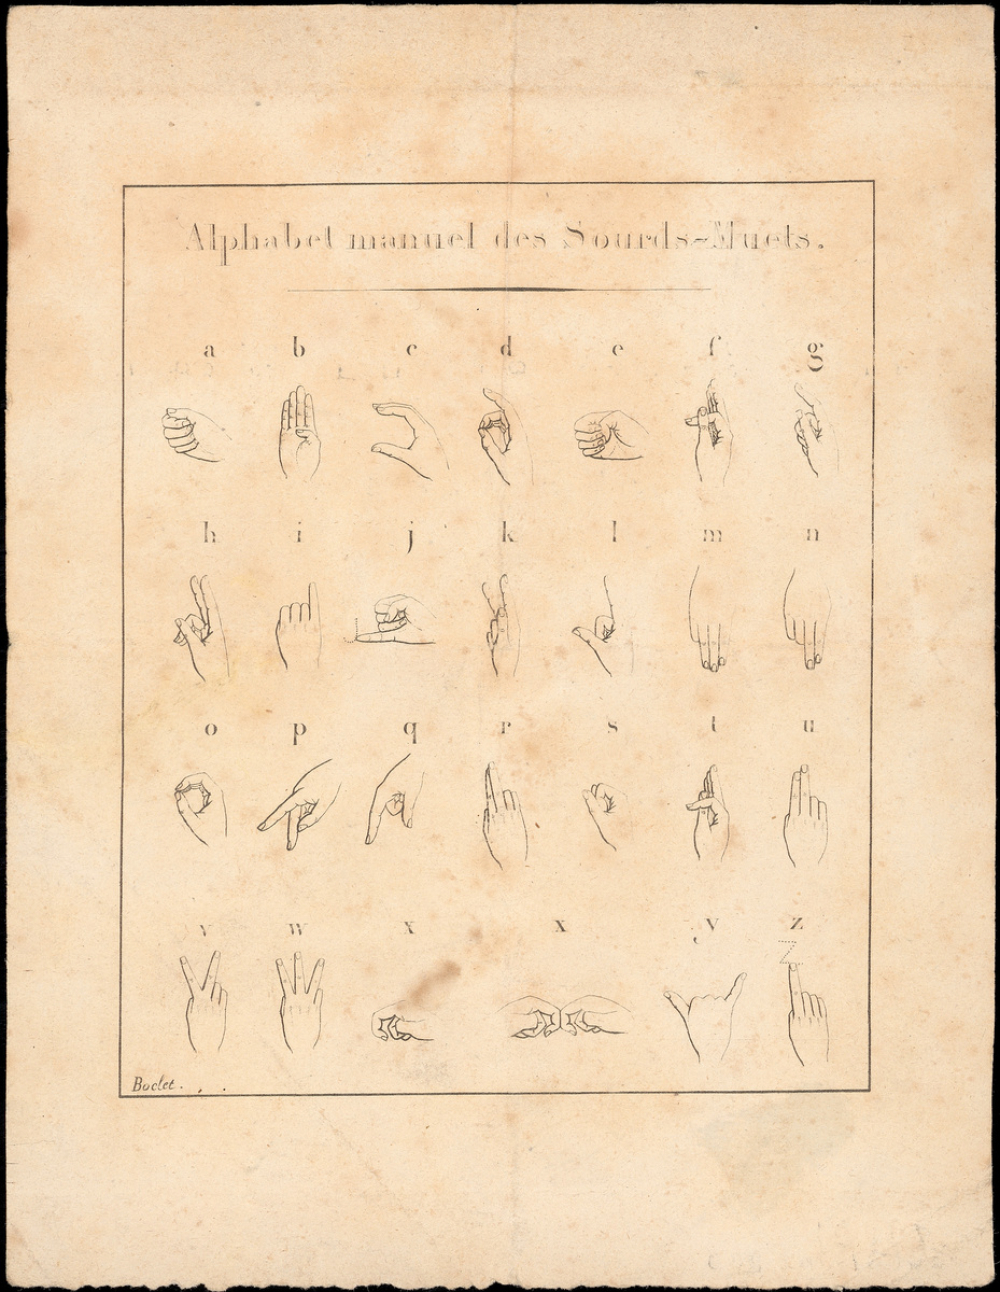 Alphabet manuel des Sourds-Muets.
a b c d e f g
h i j k l m n
o p q r s t u
v w x x y z
Z
Boclet.